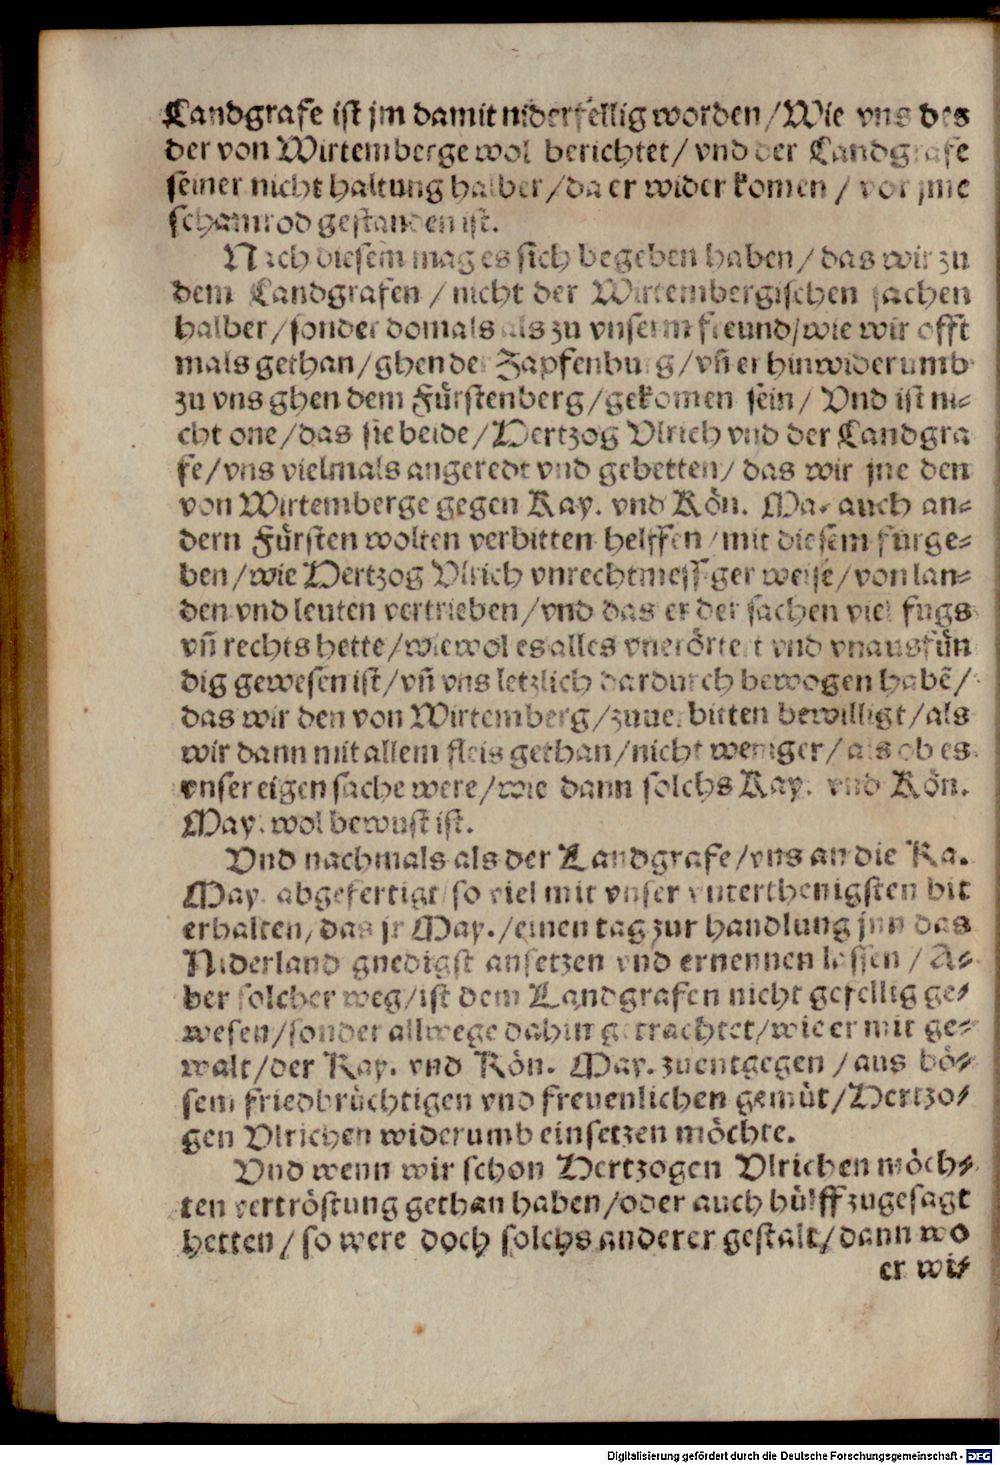 Landgrafe ist jm damit niderfellig worden / Wie vns des
der von Wirtemberge wol berichtet / vnd der Landgrafe
seiner nicht haltung halber / da er wider komen / vor jme
schamrod gestanden ist.
Nach diesem mag es sich begeben haben / das wir zu
dem Landgrafen / nicht der Wirtembergischen sachen
halber / sonder domals als zu vnserm freund / wie wir offt
mals gethan / ghen der Zapfenburg / vñ er hinwiderumb
zu vns ghen dem Fürstenberg / gekomen sein / Vnd ist ni⸗
cht one / das sie beide / Hertzog Vlrich vnd der Landgra
fe / vns vielmals angeredt vnd gebetten / das wir jne den
von Wirtemberge gegen Kay. vnd Kön. Ma. auch an⸗
dern Fürsten wolten verbitten helffen / mit diesem fürge⸗
ben / wie Hertzog Vlrich vnrechtmessiger weise / von lan⸗
den vnd leuten vertrieben / vnd das er der sachen viel fugs
vñ rechts hette / wiewol es alles vnerörtert vnd vnausfün
dig gewesen ist / vñ vns letzlich dardurch bewogen habẽ /
das wir den von Wirtemberg / zuuerbitten bewilligt / als
wir dann mit allem fleis gethan / nicht weniger / als ob es
vnser eigen sache were / wie dann solchs Kay. vnd Kön.
May. wol bewust ist.
Vnd nachmals als der Landgrafe / vns an die Ka.
May. abgefertigt / so viel mit vnser vnterthenigsten bit
erhalten, das jr May. / einen tag zur handlung jnn das
Niderland gnedigst ansetzen vnd ernennen lassen / A⸗
ber solcher weg / ist dem Landgrafen nicht gefellig ge⸗
wesen / sonder allwege dahin getrachtet / wie er mit ge⸗
walt / der Kay. vnd Kön. May. zuentgegen / aus bö⸗
sem friedbrüchtigen vnd freuenlichen gemüt / Hertzo⸗
gen Vlrichen widerumb einsetzen möchte.
Vnd wenn wir schon Hertzogen Vlrichen möch⸗
ten vertröstung gethan haben / oder auch hülff zugesagt
hetten / so were doch solchs anderer gestalt / dann wo
er wi⸗
Digitalisierung gefördert durch die Deutsche Forschungsgemeinschaft - DFG